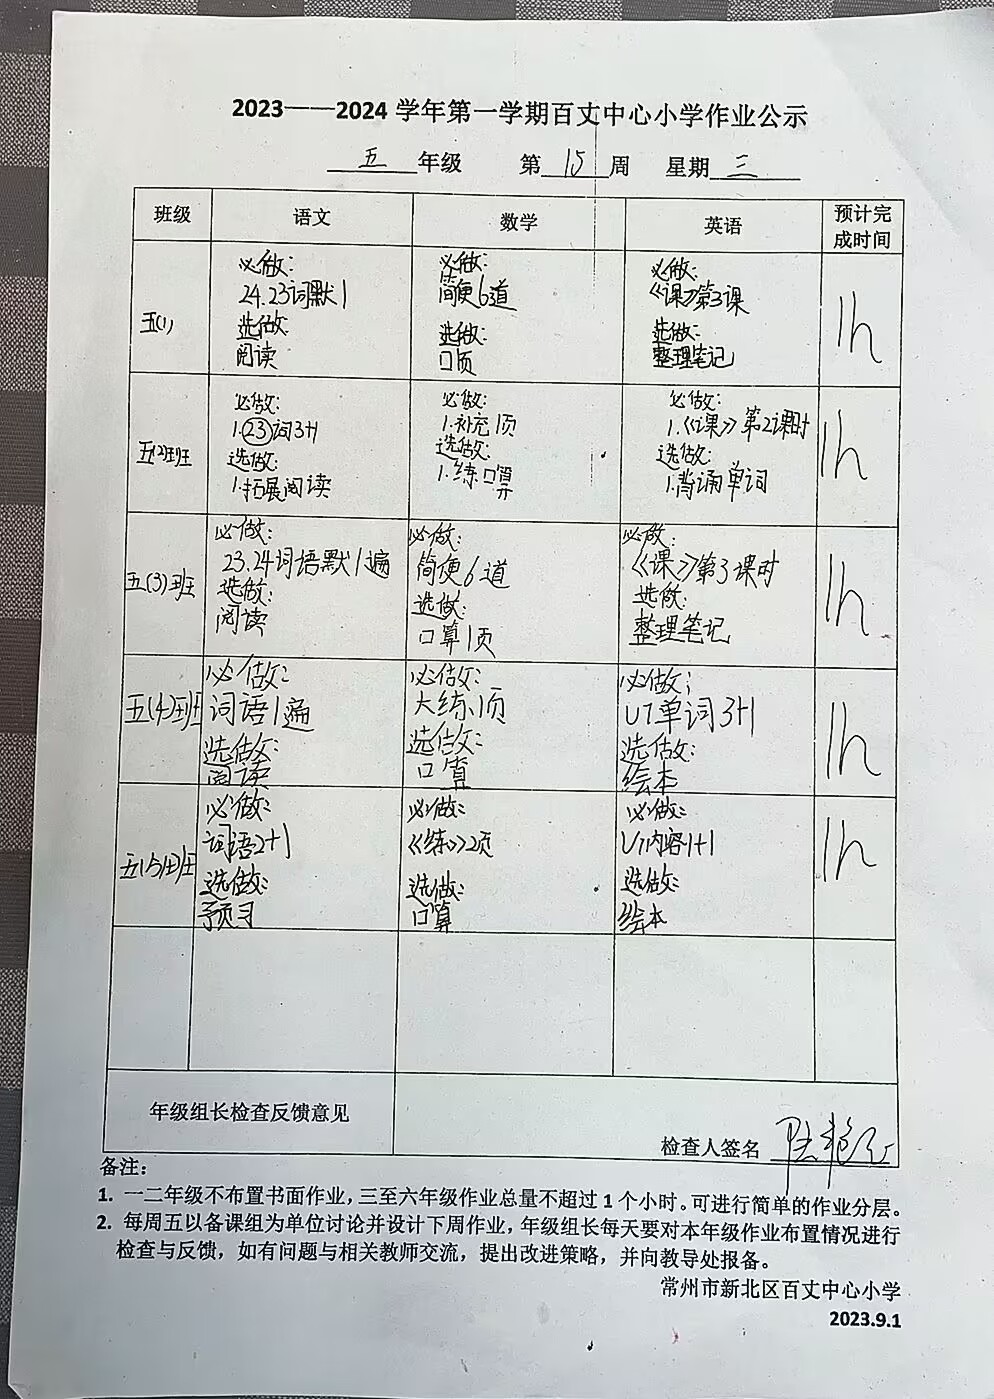 2023——2024 学年第一学期百丈中心小学作业公示
五 年级 第 15 周 星期 三
班级 语文 数学 英语 预计完成时间
五(1)
必做:
24.23词默1
选做:
阅读
必做:
简便6道
选做:
口页
必做:
《课》第3课
选做:
整理笔记
1h
五(2)班
必做:
1.23词3+1
选做:
1.拓展阅读
必做:
1.补充1页
选做:
1.练口算
必做:
1.《课》第2课时
选做:
1.背诵单词
1h
五(3)班
必做:
23.24词语默1遍
选做:
阅读
必做:
简便6道
选做:
口算1页
必做:
《课》第3课时
选做:
整理笔记
1h
五(4)班
必做:
词语1遍
选做:
阅读
必做:
大练1页
选做:
口算
必做:
U7单词3+1
选做:
绘本
1h
五(5)班
必做:
词语2+1
选做:
预习
必做:
《练》2页
选做:
口算
必做:
U7内容1+1
选做:
绘本
1h
年级组长检查反馈意见
检查人签名
备注:
1. 一二年级不布置书面作业，三至六年级作业总量不超过 1 个小时。可进行简单的作业分层。
2. 每周五以备课组为单位讨论并设计下周作业，年级组长每天要对本年级作业布置情况进行
检查与反馈，如有问题与相关教师交流，提出改进策略，并向教导处报备。
常州市新北区百丈中心小学
2023.9.1